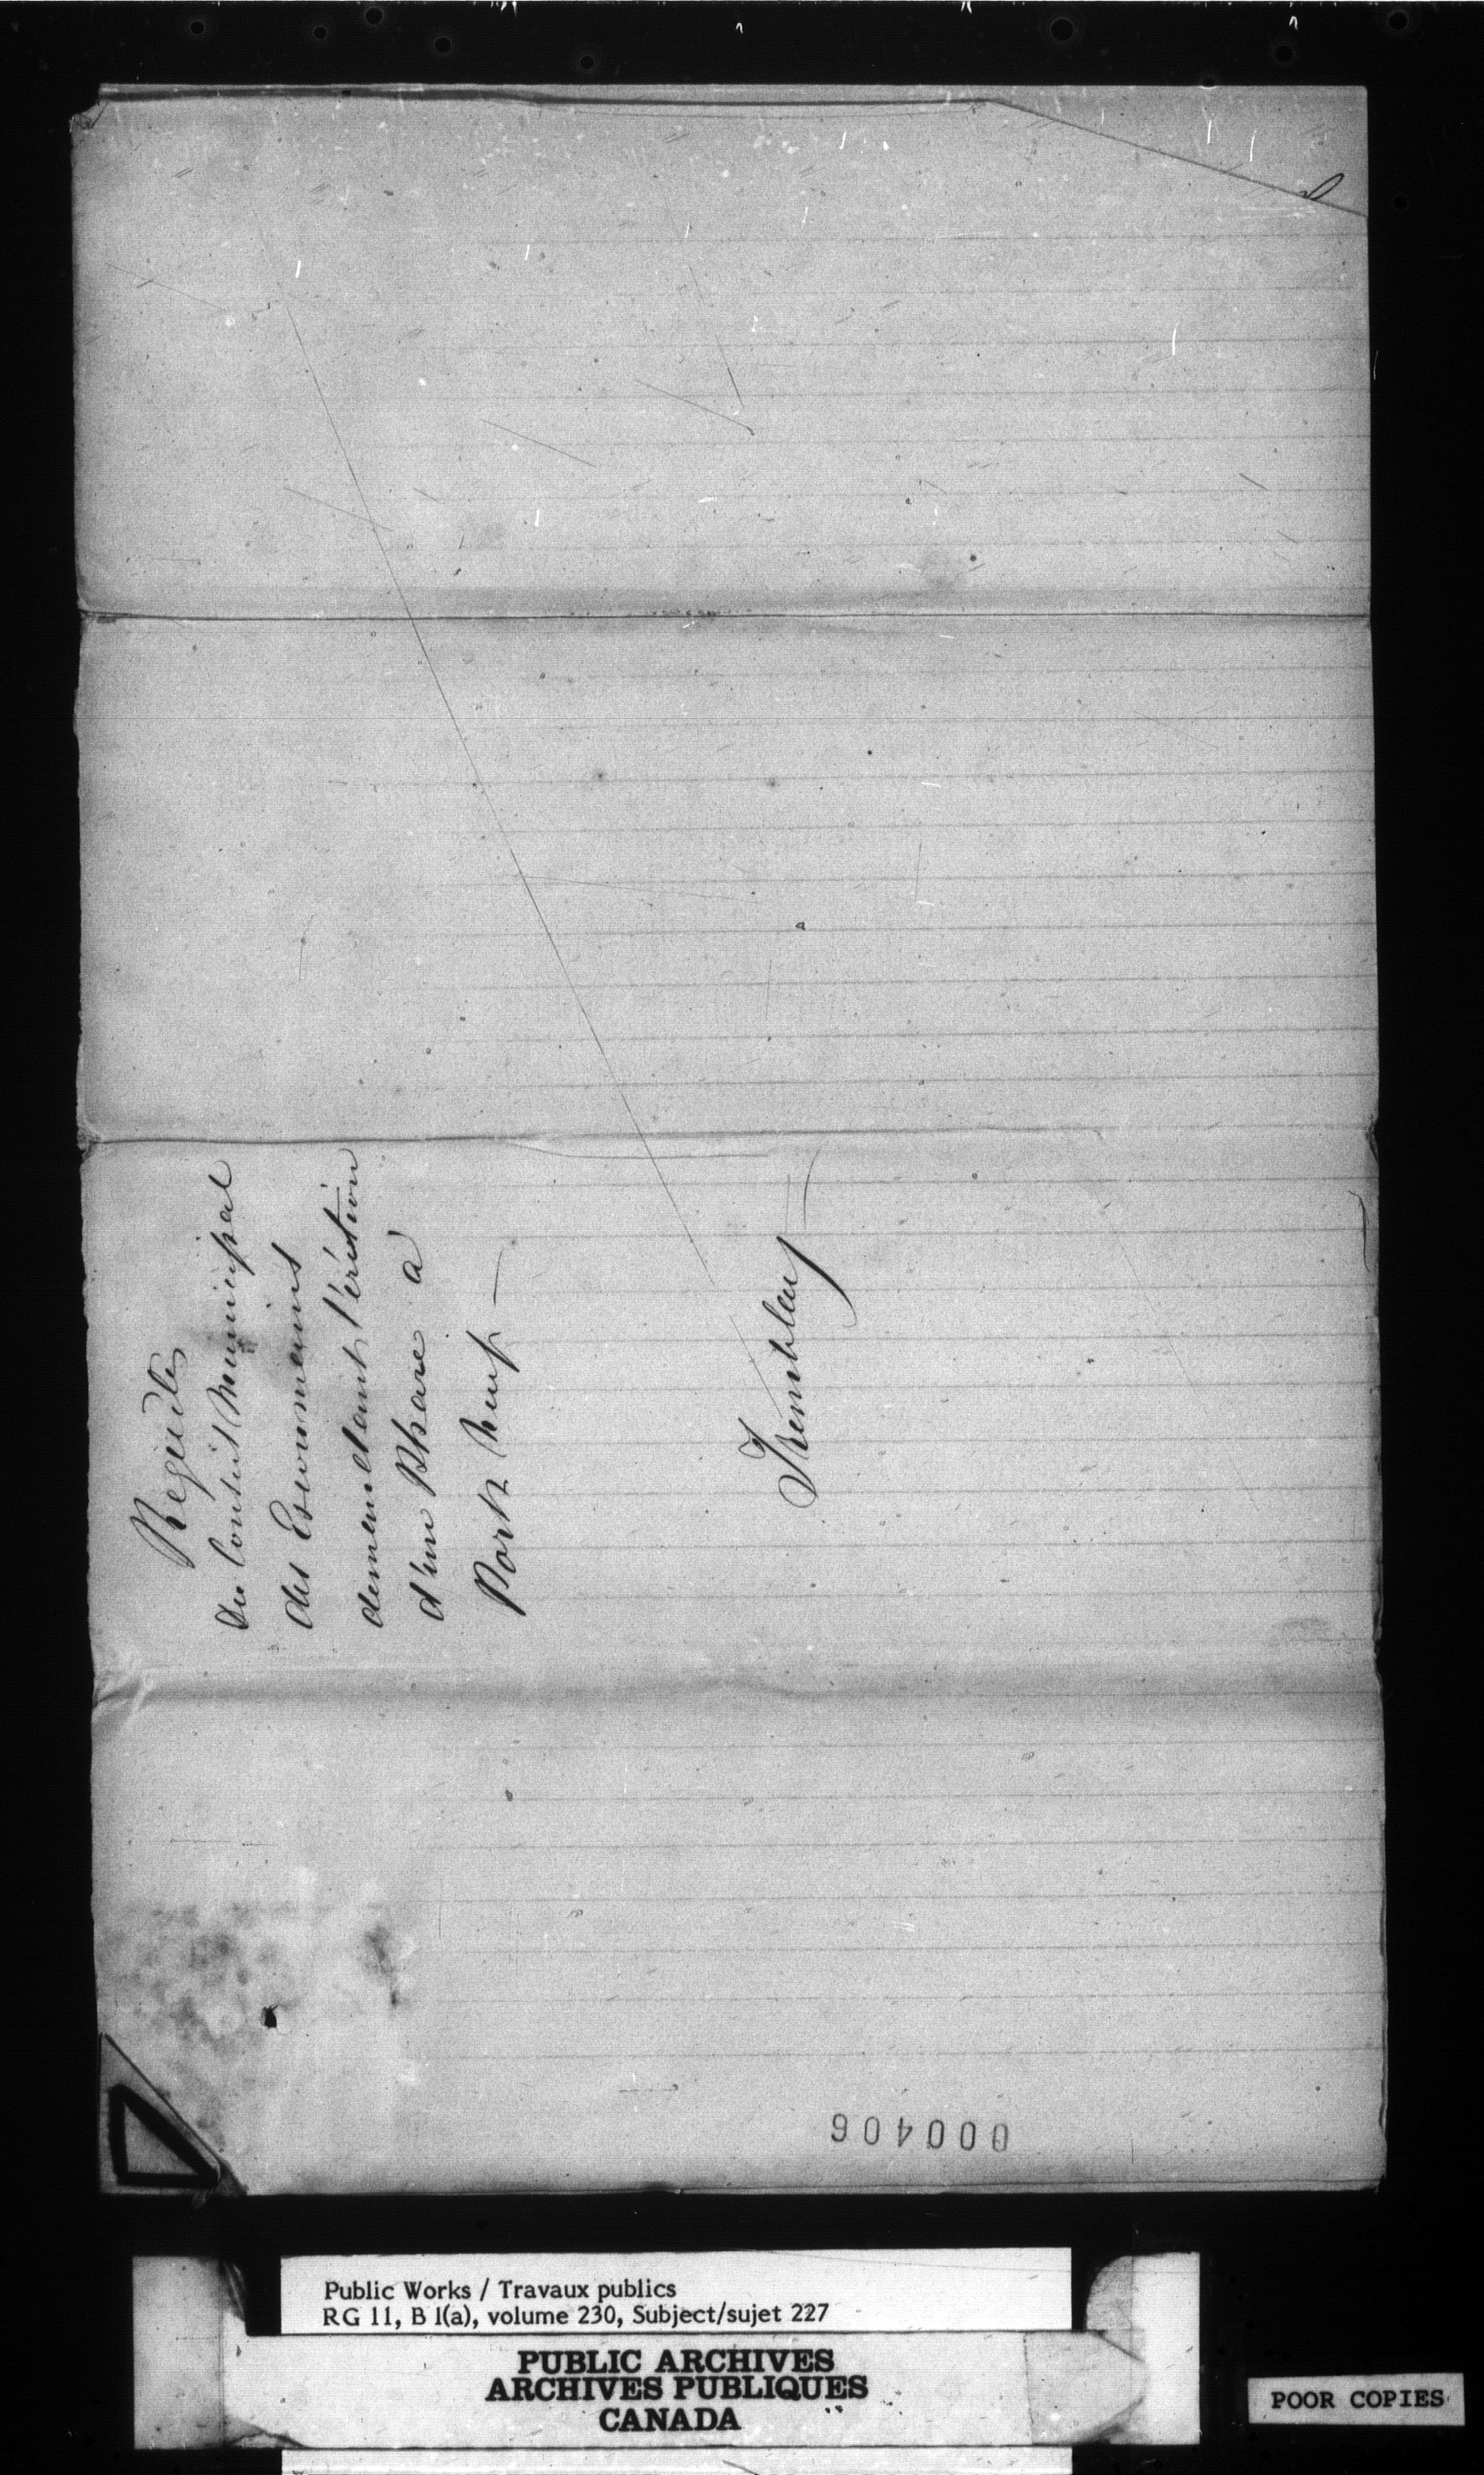 Requête
du Conseil Municipal
des Escoumains
demandant l'érection
d'un Phare à
Port Neuf —
Tremblay —
000406
Public Works / Travaux publics
RG 11, B 1(a), volume 230, Subject/sujet 227
PUBLIC ARCHIVES
ARCHIVES PUBLIQUES
CANADA
POOR COPIES